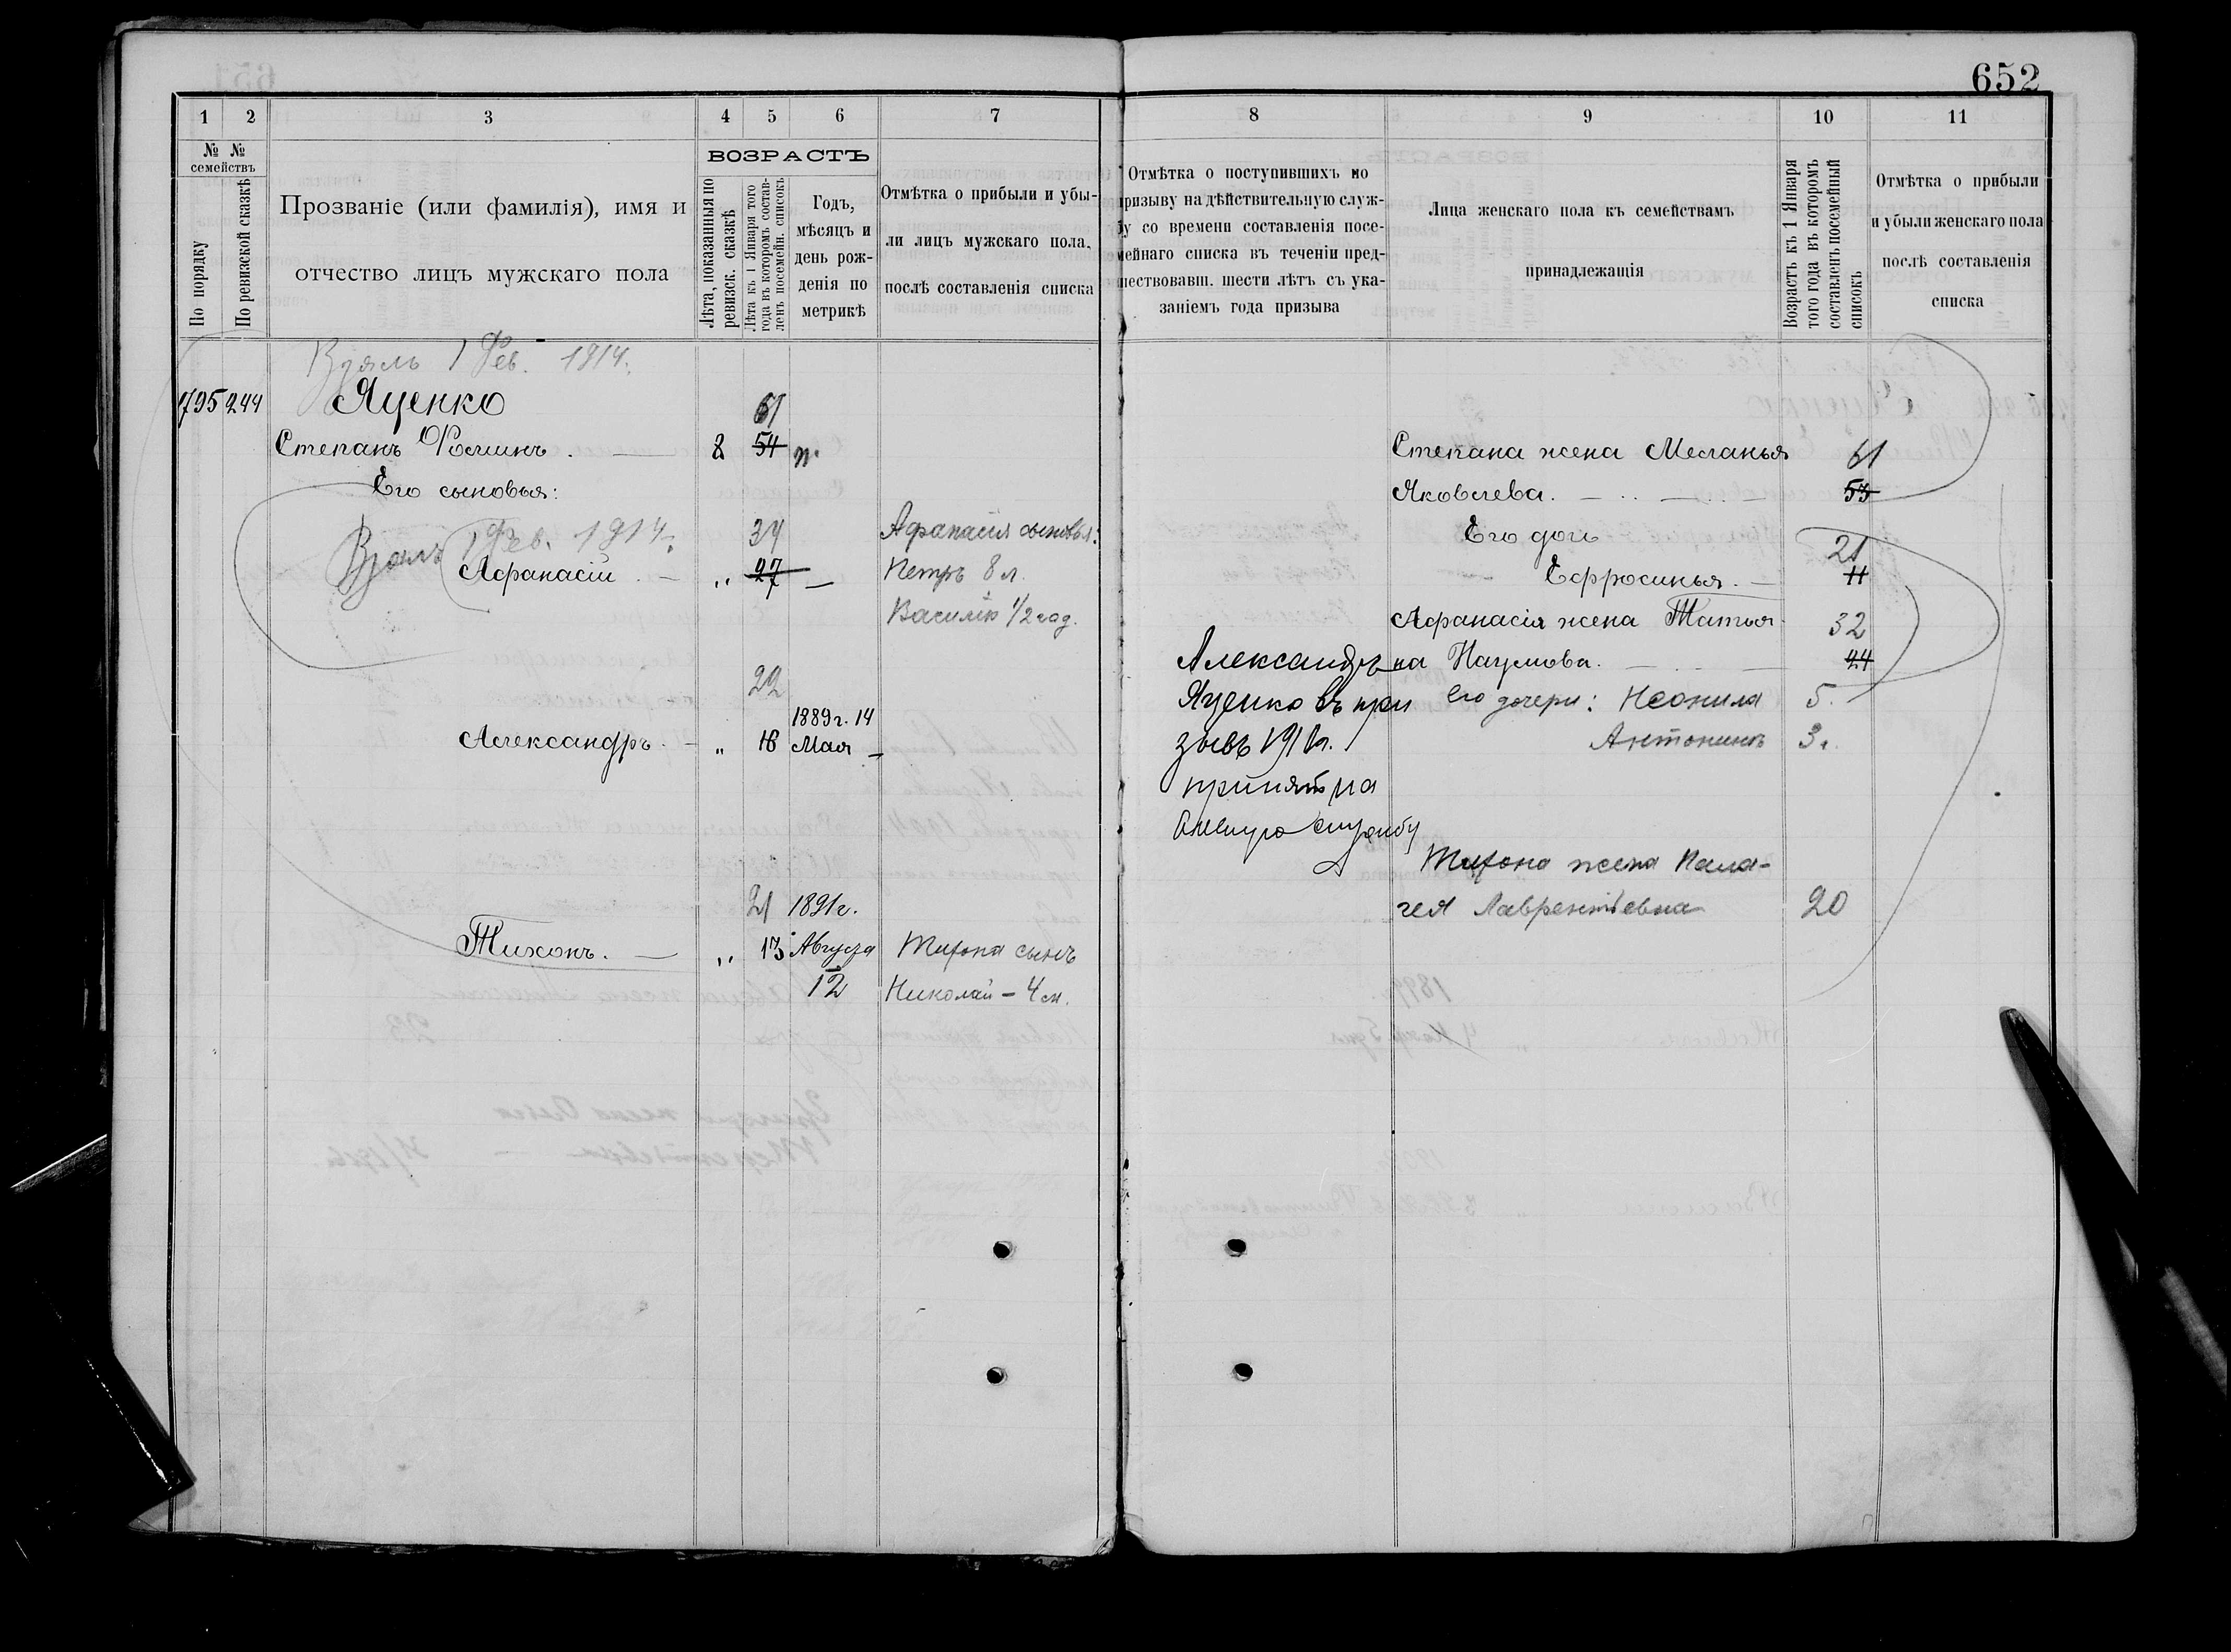 652
1 2 3 4 5 6 7
№ № семействъ
По порядку
По ревизской сказкѣ
Прозваніе (или фамилія), имя и
отчество лицъ мужскаго пола
ВОЗРАСТЪ
Лѣта, показанныя по
ревизск. сказкѣ
Лѣта къ 1 Января того
года въ которомъ состав-
ленъ посемейн. списокъ
Годъ,
мѣсяцъ и
день рож-
денія по
метрикѣ
Отмѣтка о прибыли и убы-
ли лицъ мужскаго пола,
послѣ составленія списка
1 Фев. 1914.
1795 244 Яценко 61
Степанъ Ѳоминъ. 2 54
Его сыновья:
1 Фев. 1914. 34 Афанасія сыновья:
Афанасій. — „ 27 — Петръ 8 л.
Василій 1/2 год.
22
1889 г. 14
Александръ. — „ 16 Мая —
21 1891 г.
Тихонъ. — „ 13 Августа Тихона сынъ
12 Николай – 4 м.
8 9 10 11
Отмѣтка о поступившихъ по
призыву на дѣйствительную служ-
бу со времени составленія посе-
мейнаго списка въ теченіи пред-
шествовавш. шести лѣтъ съ ука-
заніемъ года призыва
Лица женскаго пола къ семействамъ
принадлежащія
Возрастъ къ 1 Января
того года въ которомъ
составленъ посемейный
списокъ
Отмѣтка о прибыли
и убыли женскаго пола
послѣ составленія
списка
Степана жена Меланья 61
Яковлева. 53
Его дочь 21
Ефросинья. — 11
Афанасія жена Татья- 32
на Наумова. 24
Его дочери: Неонила 5.
Антонина 3 г.
Александръ
Яценко въ при
зывъ 191 г.
принятъ на
службу
Тихона жена Пела-
гея Лаврентіевна 20